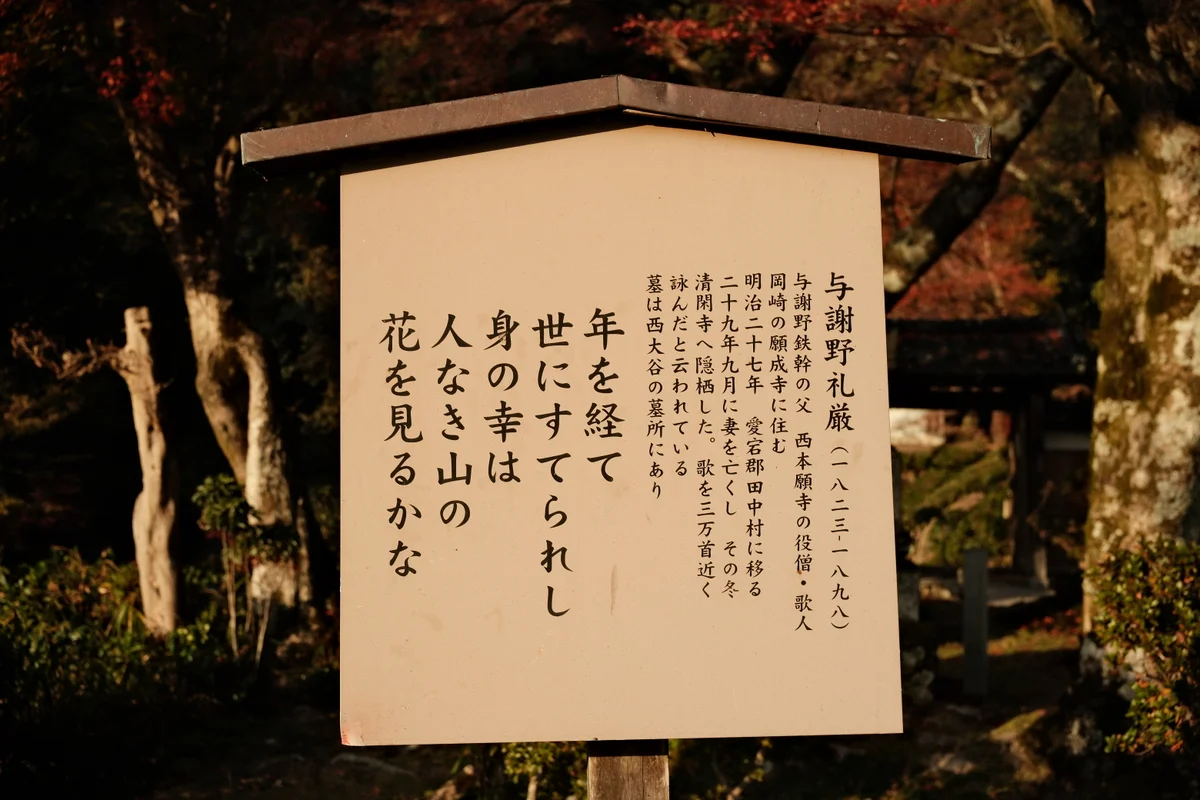 与謝野礼厳（一八二三-一八九八）
与謝野鉄幹の父　西本願寺の役僧・歌人
岡崎の願成寺に住む
明治二十七年　愛宕郡田中村に移る
二十九年九月に妻を亡くし　その冬
清閑寺へ隠栖した。歌を三万首近く
詠んだと云われている
墓は西大谷の墓所にあり
年を経て
世にすてられし
身の幸は
人なき山の
花を見るかな